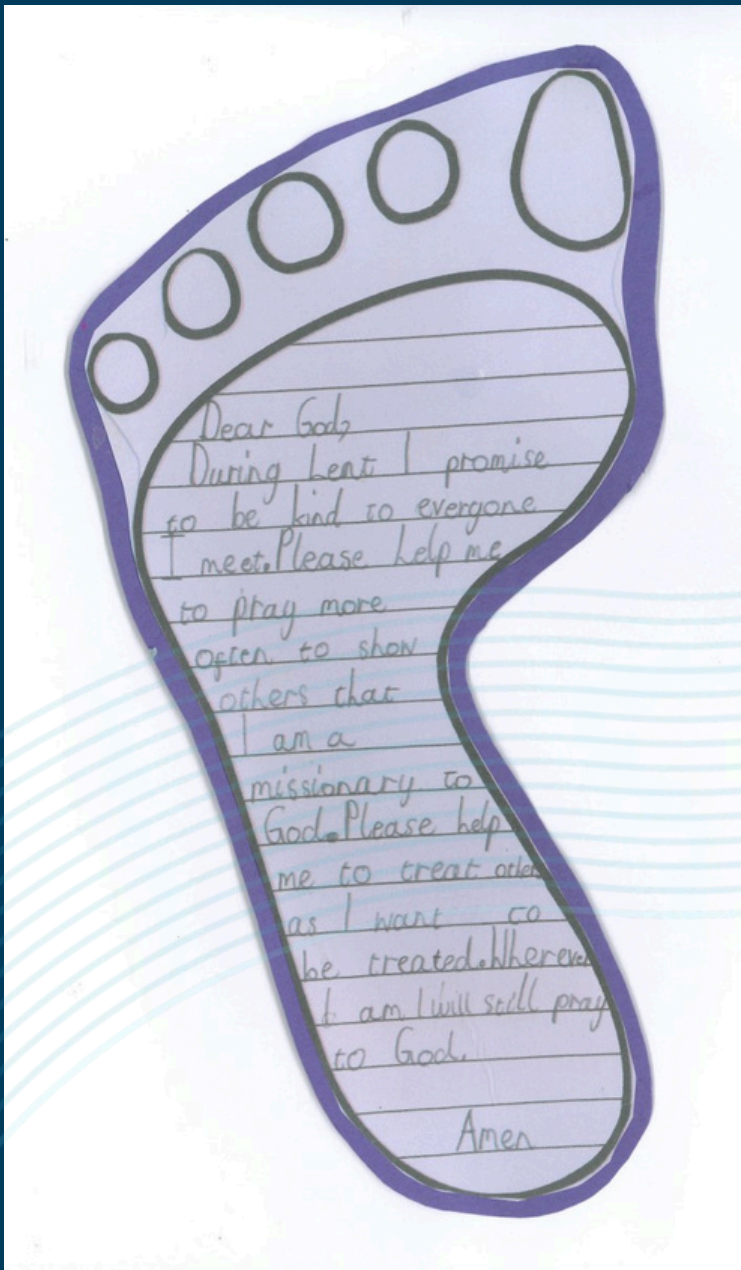 Dear God,
During Lent I promise
to be kind to everyone
I meet. Please help me
to pray more
often to show
others that
I am a
missionary to
God. Please help
me to treat others
as I want to
be treated. Wherever
I am I will still pray
to God.
Amen